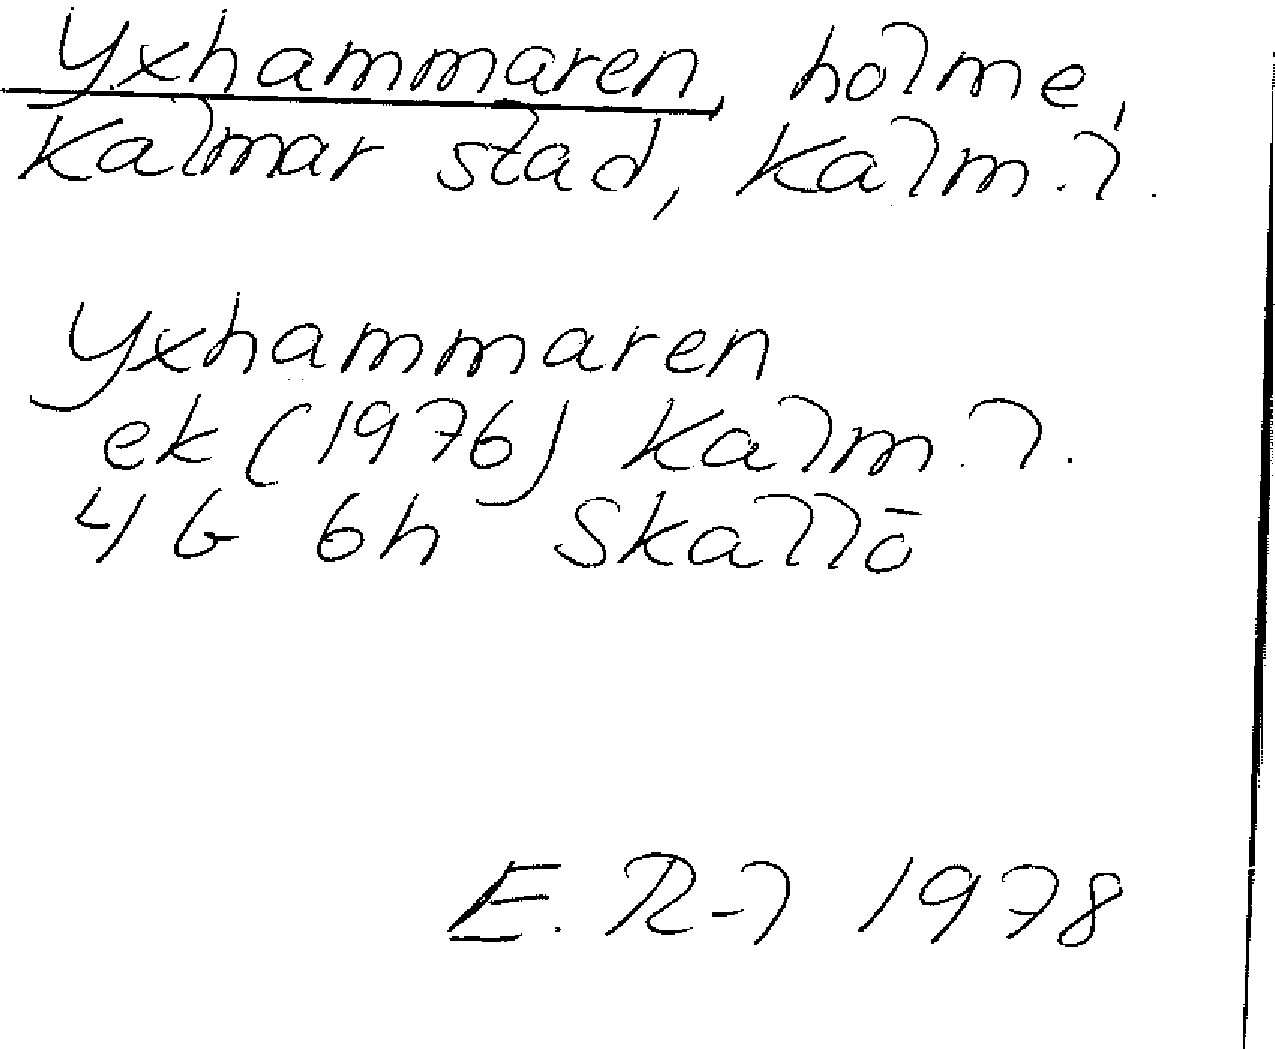 Yxhammaren, holme,
Kalmar stad, Kalm. l.
Yxhammaren
ek (1976) Kalm. l.
4G 6h Skallö
E. R-l 1978